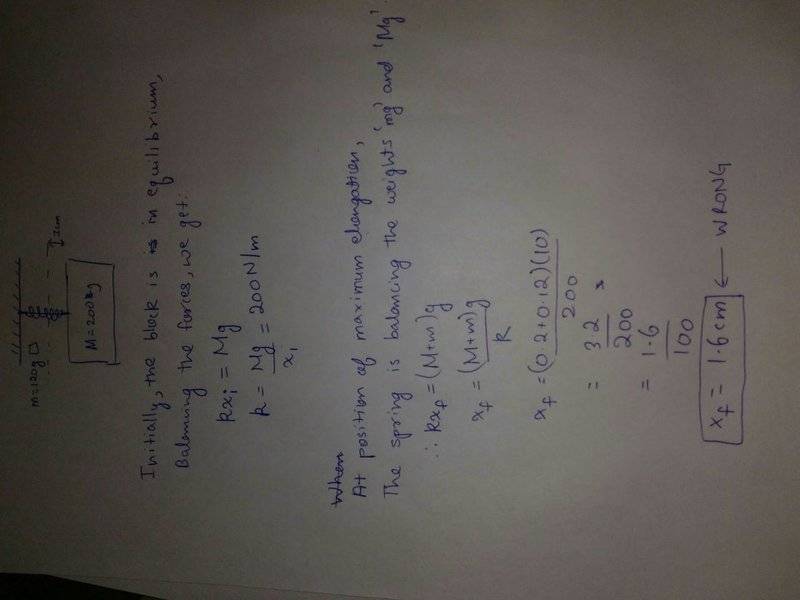 m=120g
1cm
M=200g
Initially, the block is in equilibrium,
Balancing the forces, we get:
kxi = Mg
k = Mg/x1 = 200N/m
When
At position of maximum elongation,
The spring is balancing the weights 'mg' and 'Mg'.
∴ kxf = (M+m)g
xf = (M+m)g/k
xf = (0.2+0.12)(10)/200
= 3.2/200
= 1.6/100
xf = 1.6cm ← WRONG